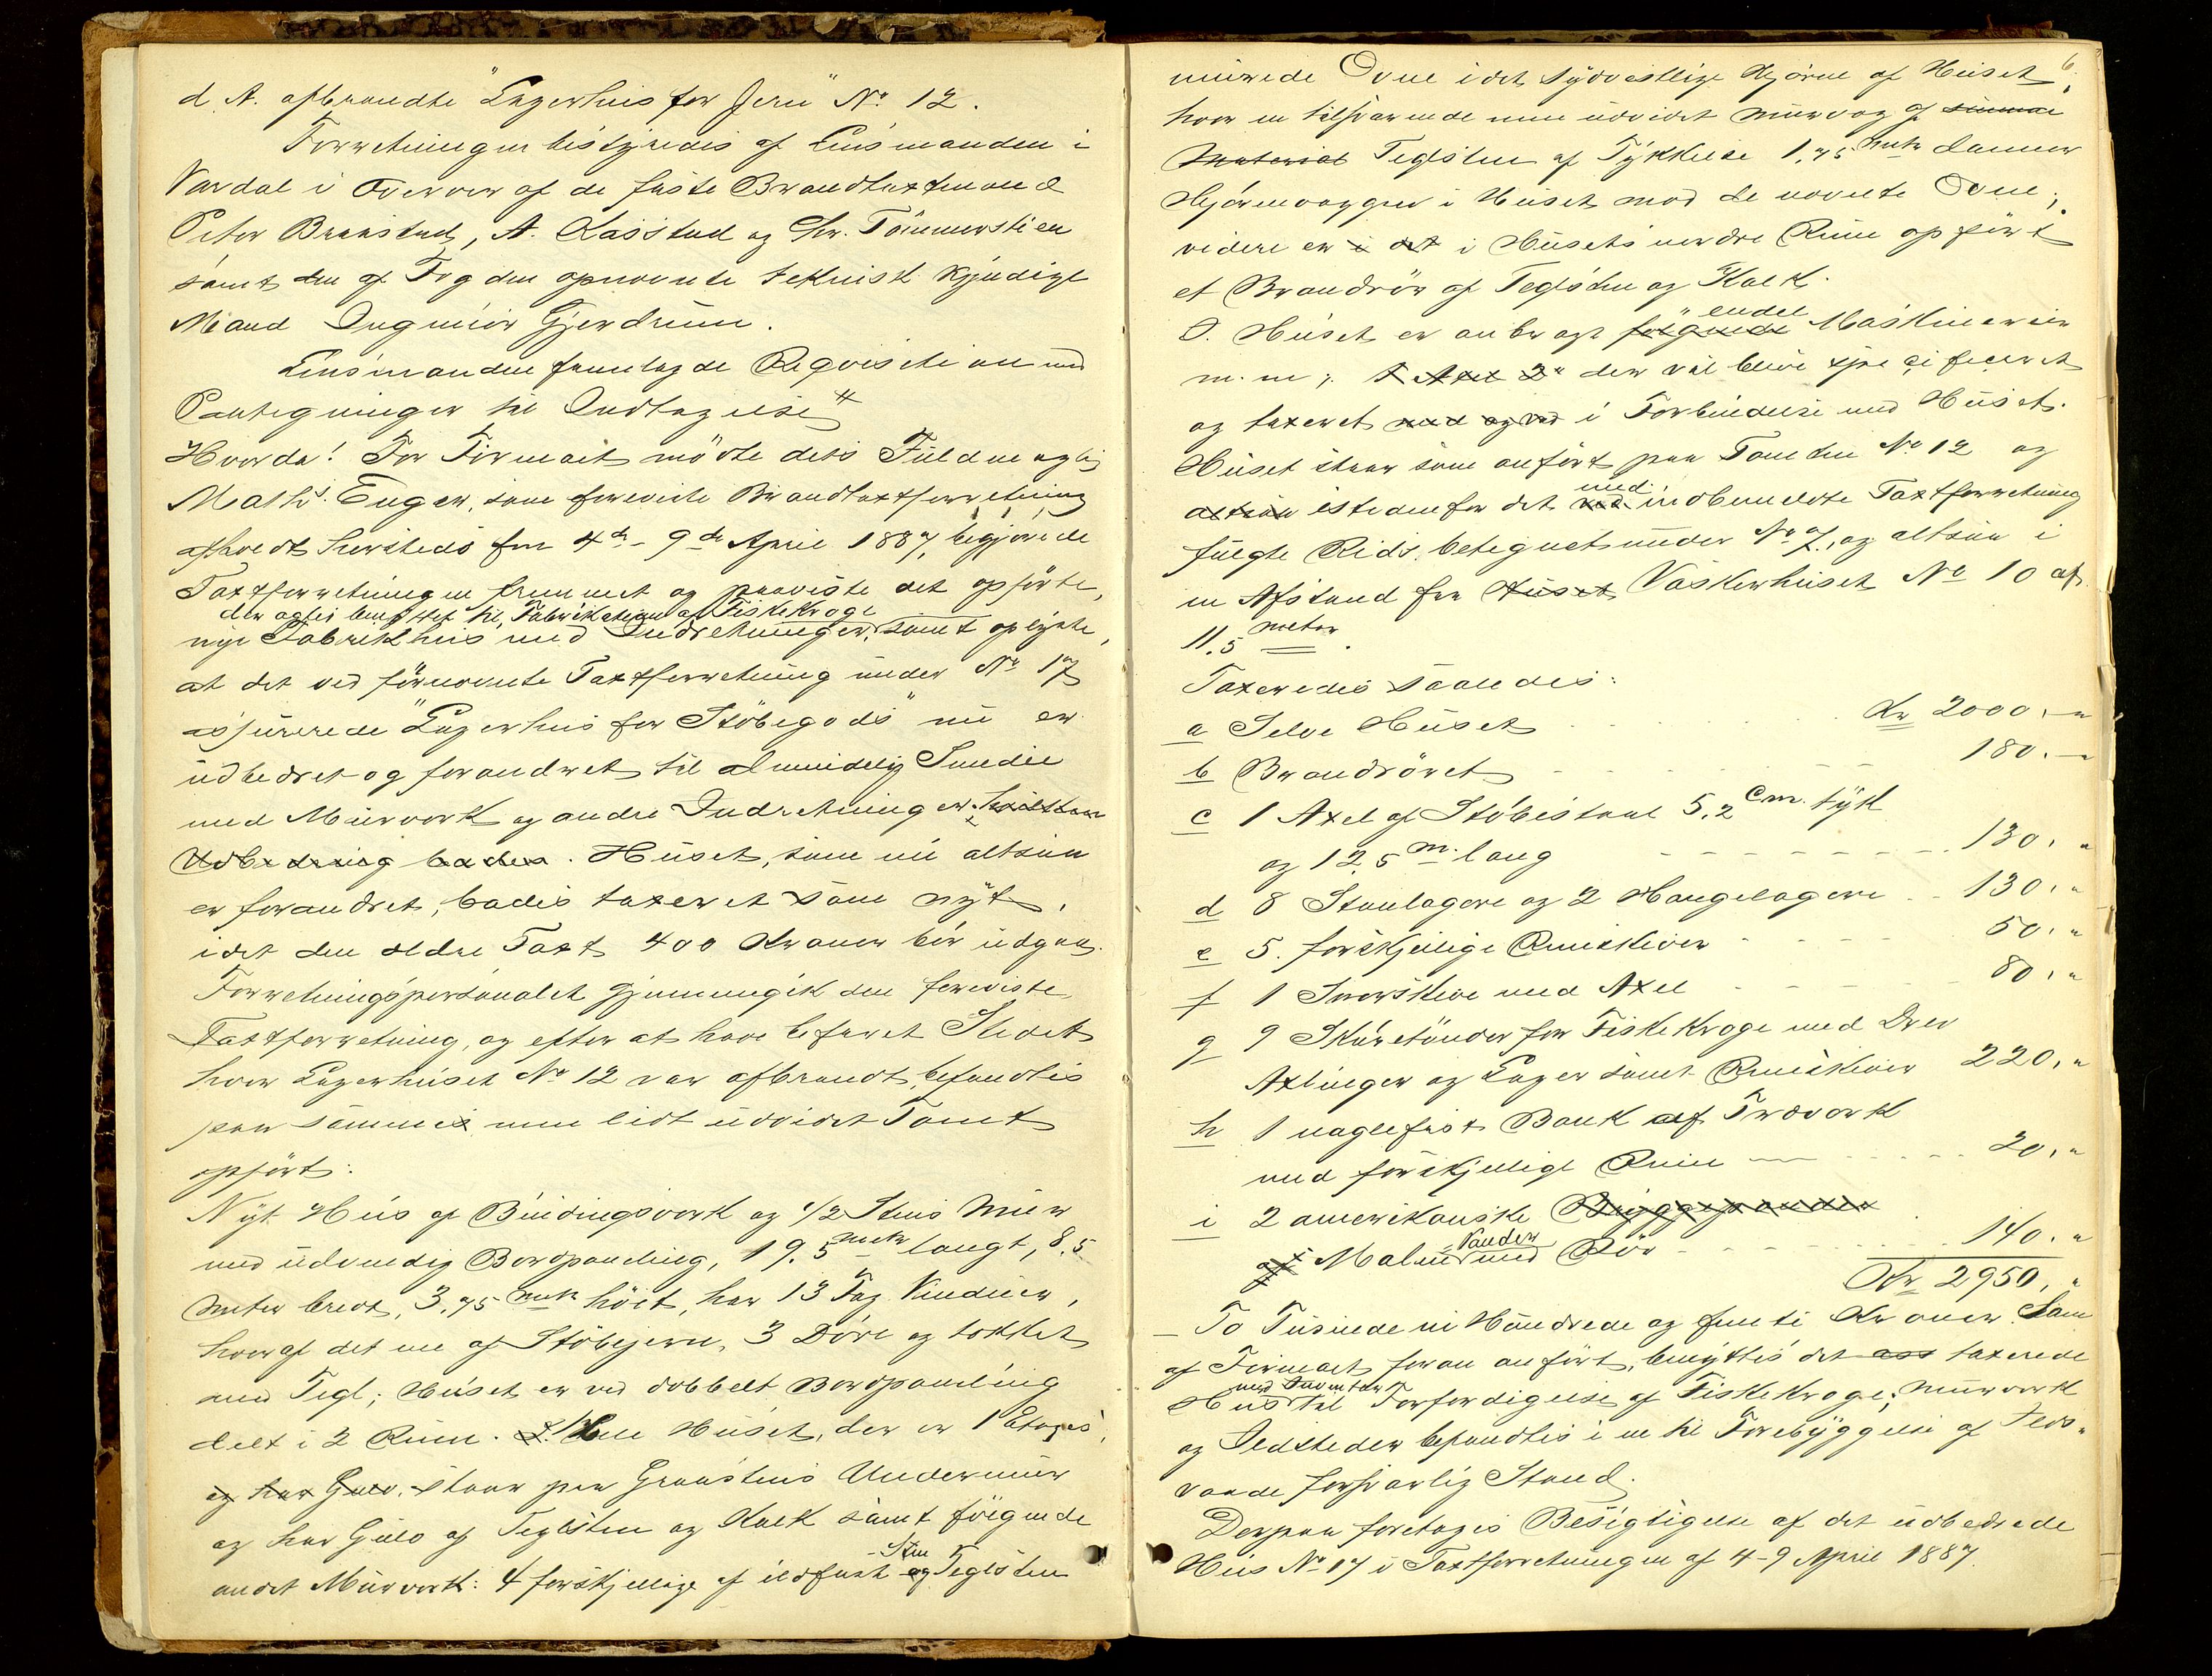 d. A. afbrændte "Lagerhus for Jern" No. 12.
Forretningen bestyredes af Lensmanden i
Vardal i Overvær af de faste Brandtaxtmænd
Peter Braastad, A. Kasstad og Chr. Tømmerstien
samt den af Fogden opnævnte teknisk kyndige
Mand Ingeniør Gjerdrum.
Lensmanden fremlagde Reqvisition med
Paategninger til Indtagelse #
Hvorda! For Firmaet mødte dets Fuldmægtig
Maths. Enger, som foreviste Brandtaxtforretning
afholdt hersteds fra 4de - 9de April 1887, begjærede
Taxtforretningen fremmet og paaviste det opførte,
der agtes benyttet til Fabrikation af Fiskekroge
nye Fabrikhus med Indretninger, samt oplyste,
at det ved førnævnte Taxtforretning under No 17
assurerede "Lagerhus for Støbegods" nu er
udbedret og forandret til almindelig Smedie
med Murværk og andre Indretninger,
Udbedring bades. Huset, som nu altsaa
er forandret, bades taxeret som nyt,
idet den ældre Taxt 400 Kroner bør udgaa.
Forretningspersonalet gjennemgik den foreviste
Taxtforretning, og efter at have befaret Stedet
hvor Lagerhuset No 12 var afbrændt, befandtes
paa samme men lidt udvidet Tomt
opført:
Nyt Hus af Bindingsværk og 1/2 Stens Mur
med udvendig Bordpaneling, 19.5 metr langt, 8.5
meter bredt, 3.75 metr høit, har 13 Fag Vinduer,
hvoraf det ene af Støbejern, 3 Døre og tækket
med Tegl; Huset er ved dobbelt Bordpaneling
delt i 2 Rum. Hele Huset, der er 1 Etages,
og har Gulv, staar paa Graastens Undermur
og har Gulv af Teglsten og Kalk samt følgende
Sten
andet Murværk: 4 forskjellige af ildfast og Teglsten
6
murede Ovne i det sydvestlige Hjørne af Huset;
hvor en tilsvarende men udvidet Murvæg af samme
Material Teglsten af Tykkelse 1.75 metr danner
Hjørnevæggen i Huset mod de nævnte Ovne;
videre er i det i Husets nordre Rum opført
et Brandrør af Teglsten og Kalk.
endel
I Huset er anbragt følgende Maskinerier
m. m; 1 Axel 2" der vil blive specificeret
og taxeret med og ved i Forbindelse med Huset.
Huset staar som anført paa Tomten No 12 og
med
altsaa istedenfor det ved indbemeldte Taxtforretning
fulgte Rids betegnet under No 7, og altsaa i
en Afstand fra Huset Vaskerhuset No 10 af
11.5 meter.
Taxeredes saaledes:
a Selve Huset Kr 2000. "
b Brandrøret 180. "
c 1 Axel af Støbestaal 5.2 cm. tyk
og 12.5 m. lang 130. "
d 8 Staalagere og 2 Hængelagere 130. "
e 5. forskjellige Remskiver 50. "
f 1 Snorskive med Axel 80. "
g 9 Skuretønder for Fiskekroge med Drev
Axlinger og Lager samt Remskiver 220. "
h 1 naglefast Bænk af Træværk
med forskjellige Rum 20. "
i 2 amerikanske Bryggepander
Pander
af Malm med Rør 140. "
Kr 2950. "
To Tusinde ni Hundrede og femti Kroner. Som
af Firmaet foran anført, benyttes det ass taxerede
med Inventar
Hus til Forfærdigelse af Fiskekroge; Murværk
og Ildsteder befandtes i en til Forebyggelse af Ilds-
vaade forsvarlig Stand.
Derpaa foretages Besigtigelse af det udbedrede
Hus No 17 i Taxtforretningen af 4-9 April 1887.